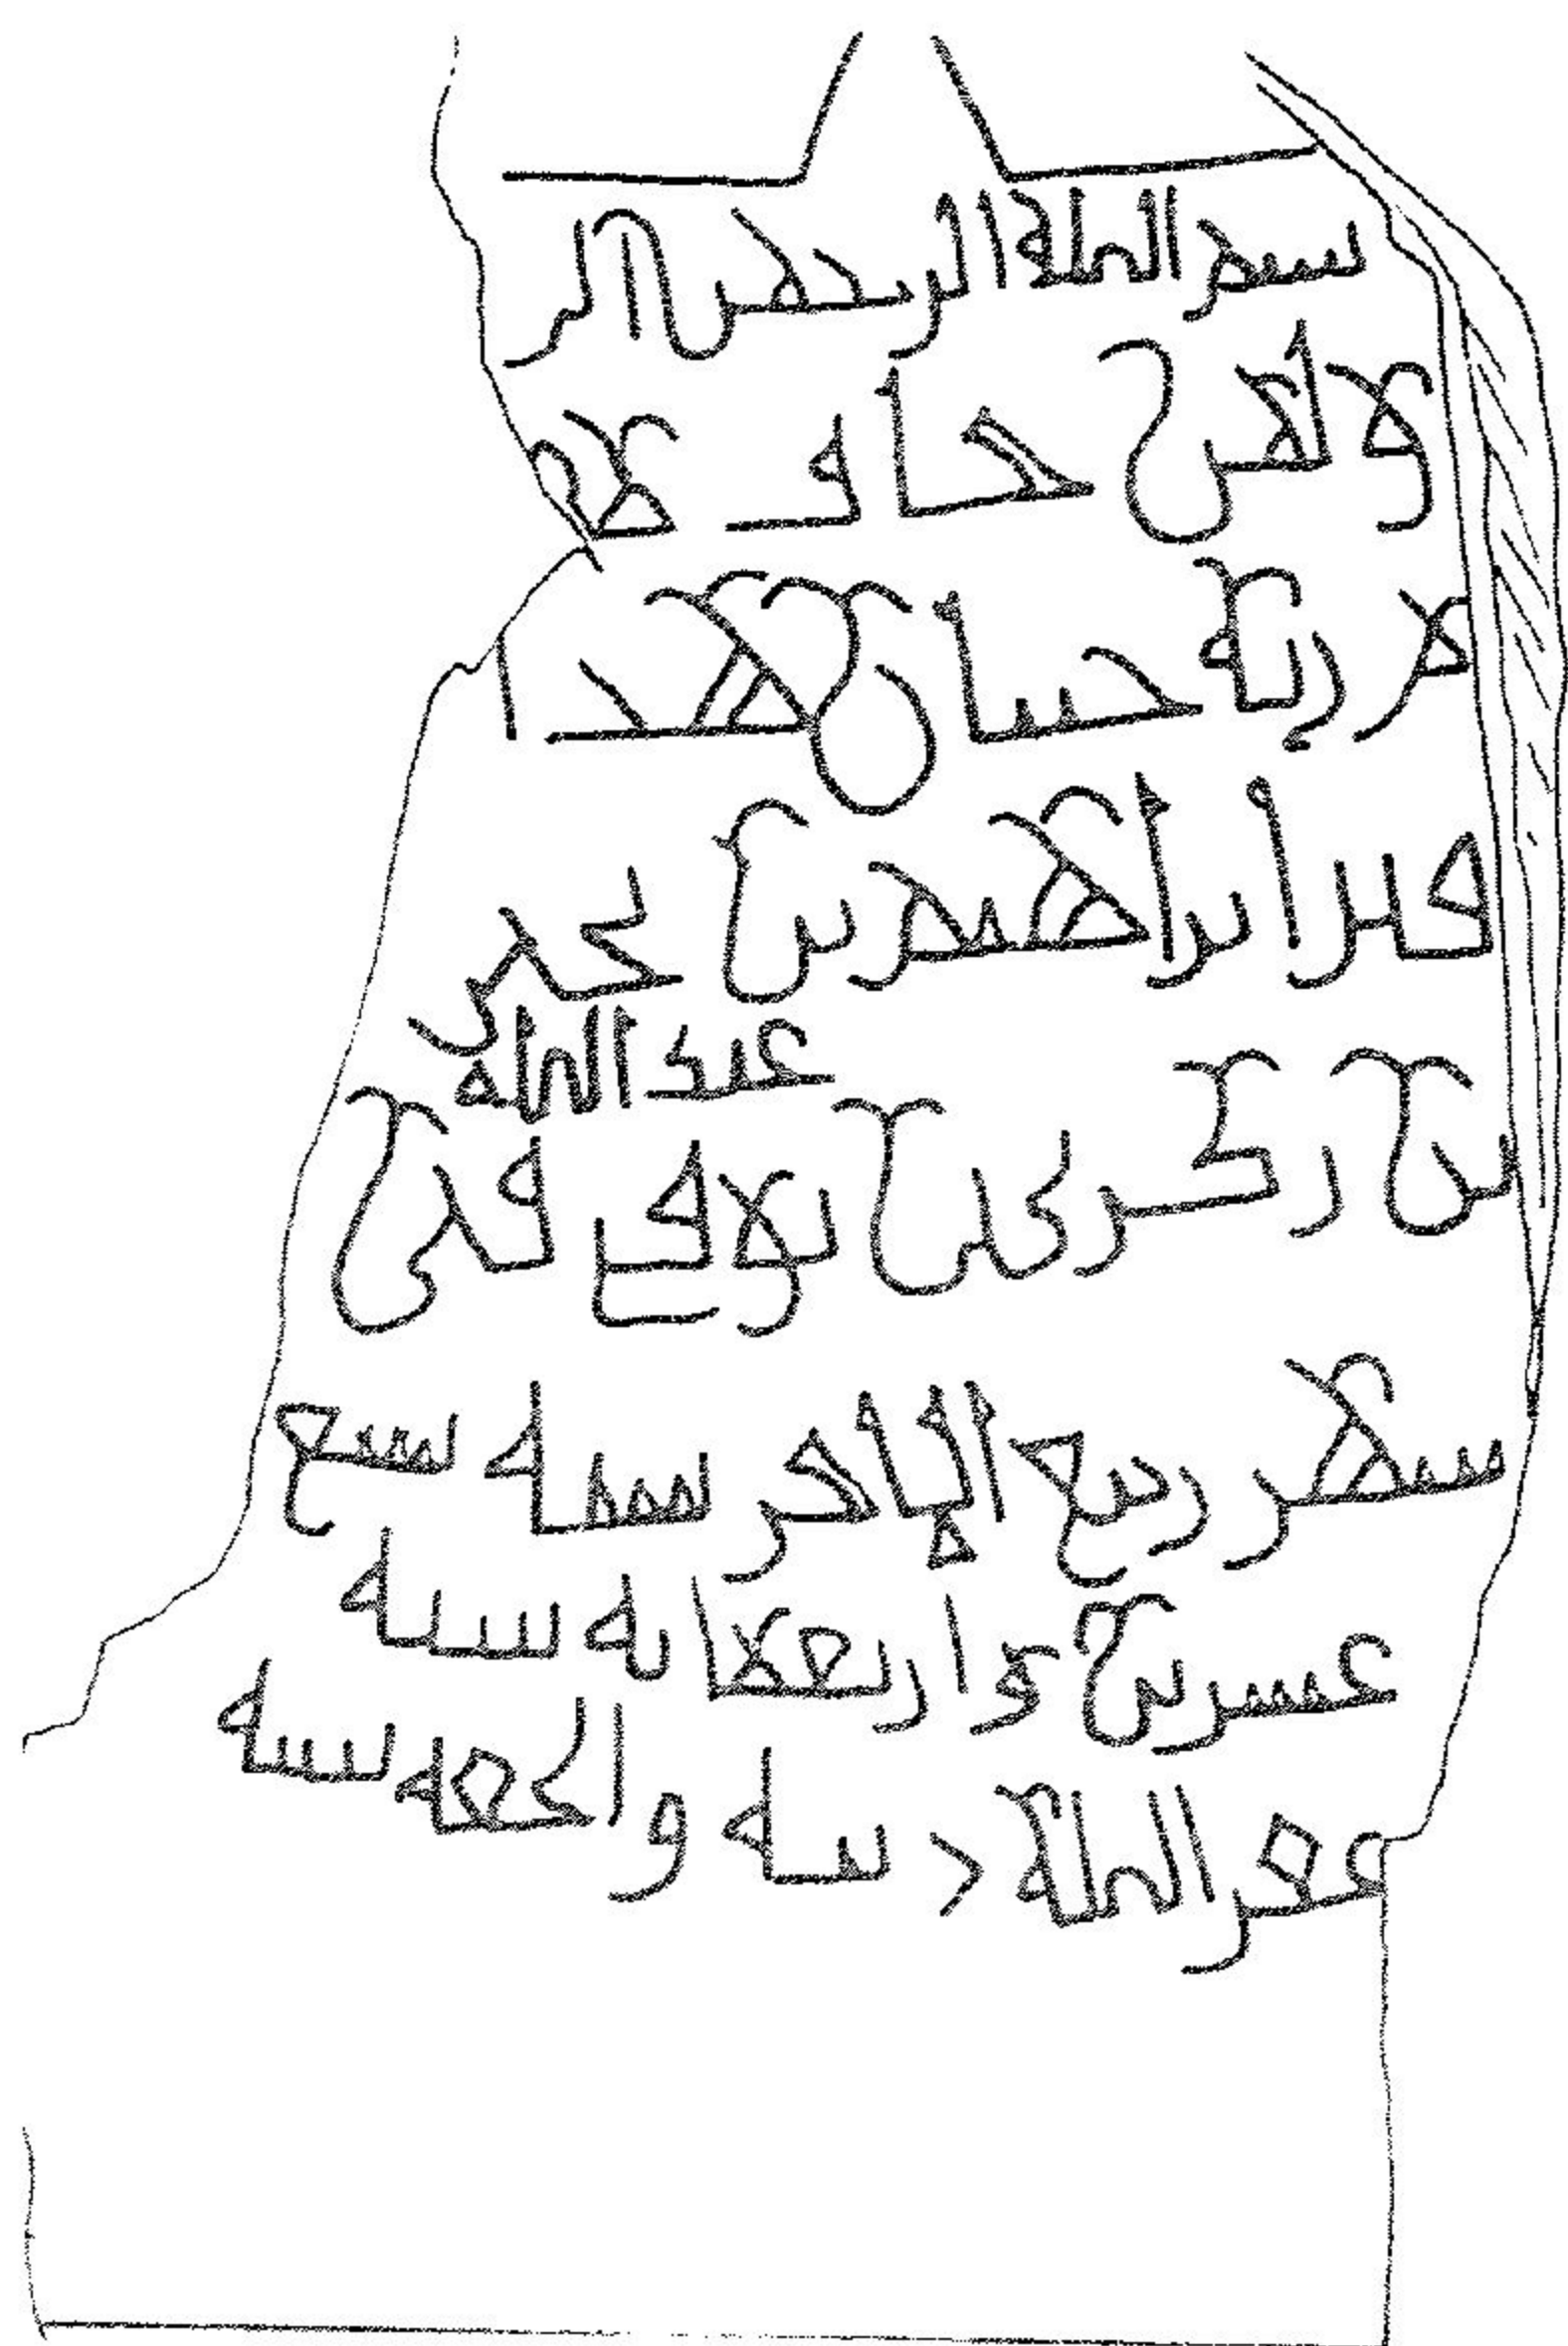 بسم الله الرحمن الر
ولمن خاف مقا
م ربه جنتان هذا
قبر ابراهيم بن
عبد الله
بن زكرى بن توفي في
شهر ربيع الاخر سنة سبع
عشرين واربعماية سنة
غفر الله ذنبه والحقه بنبيه